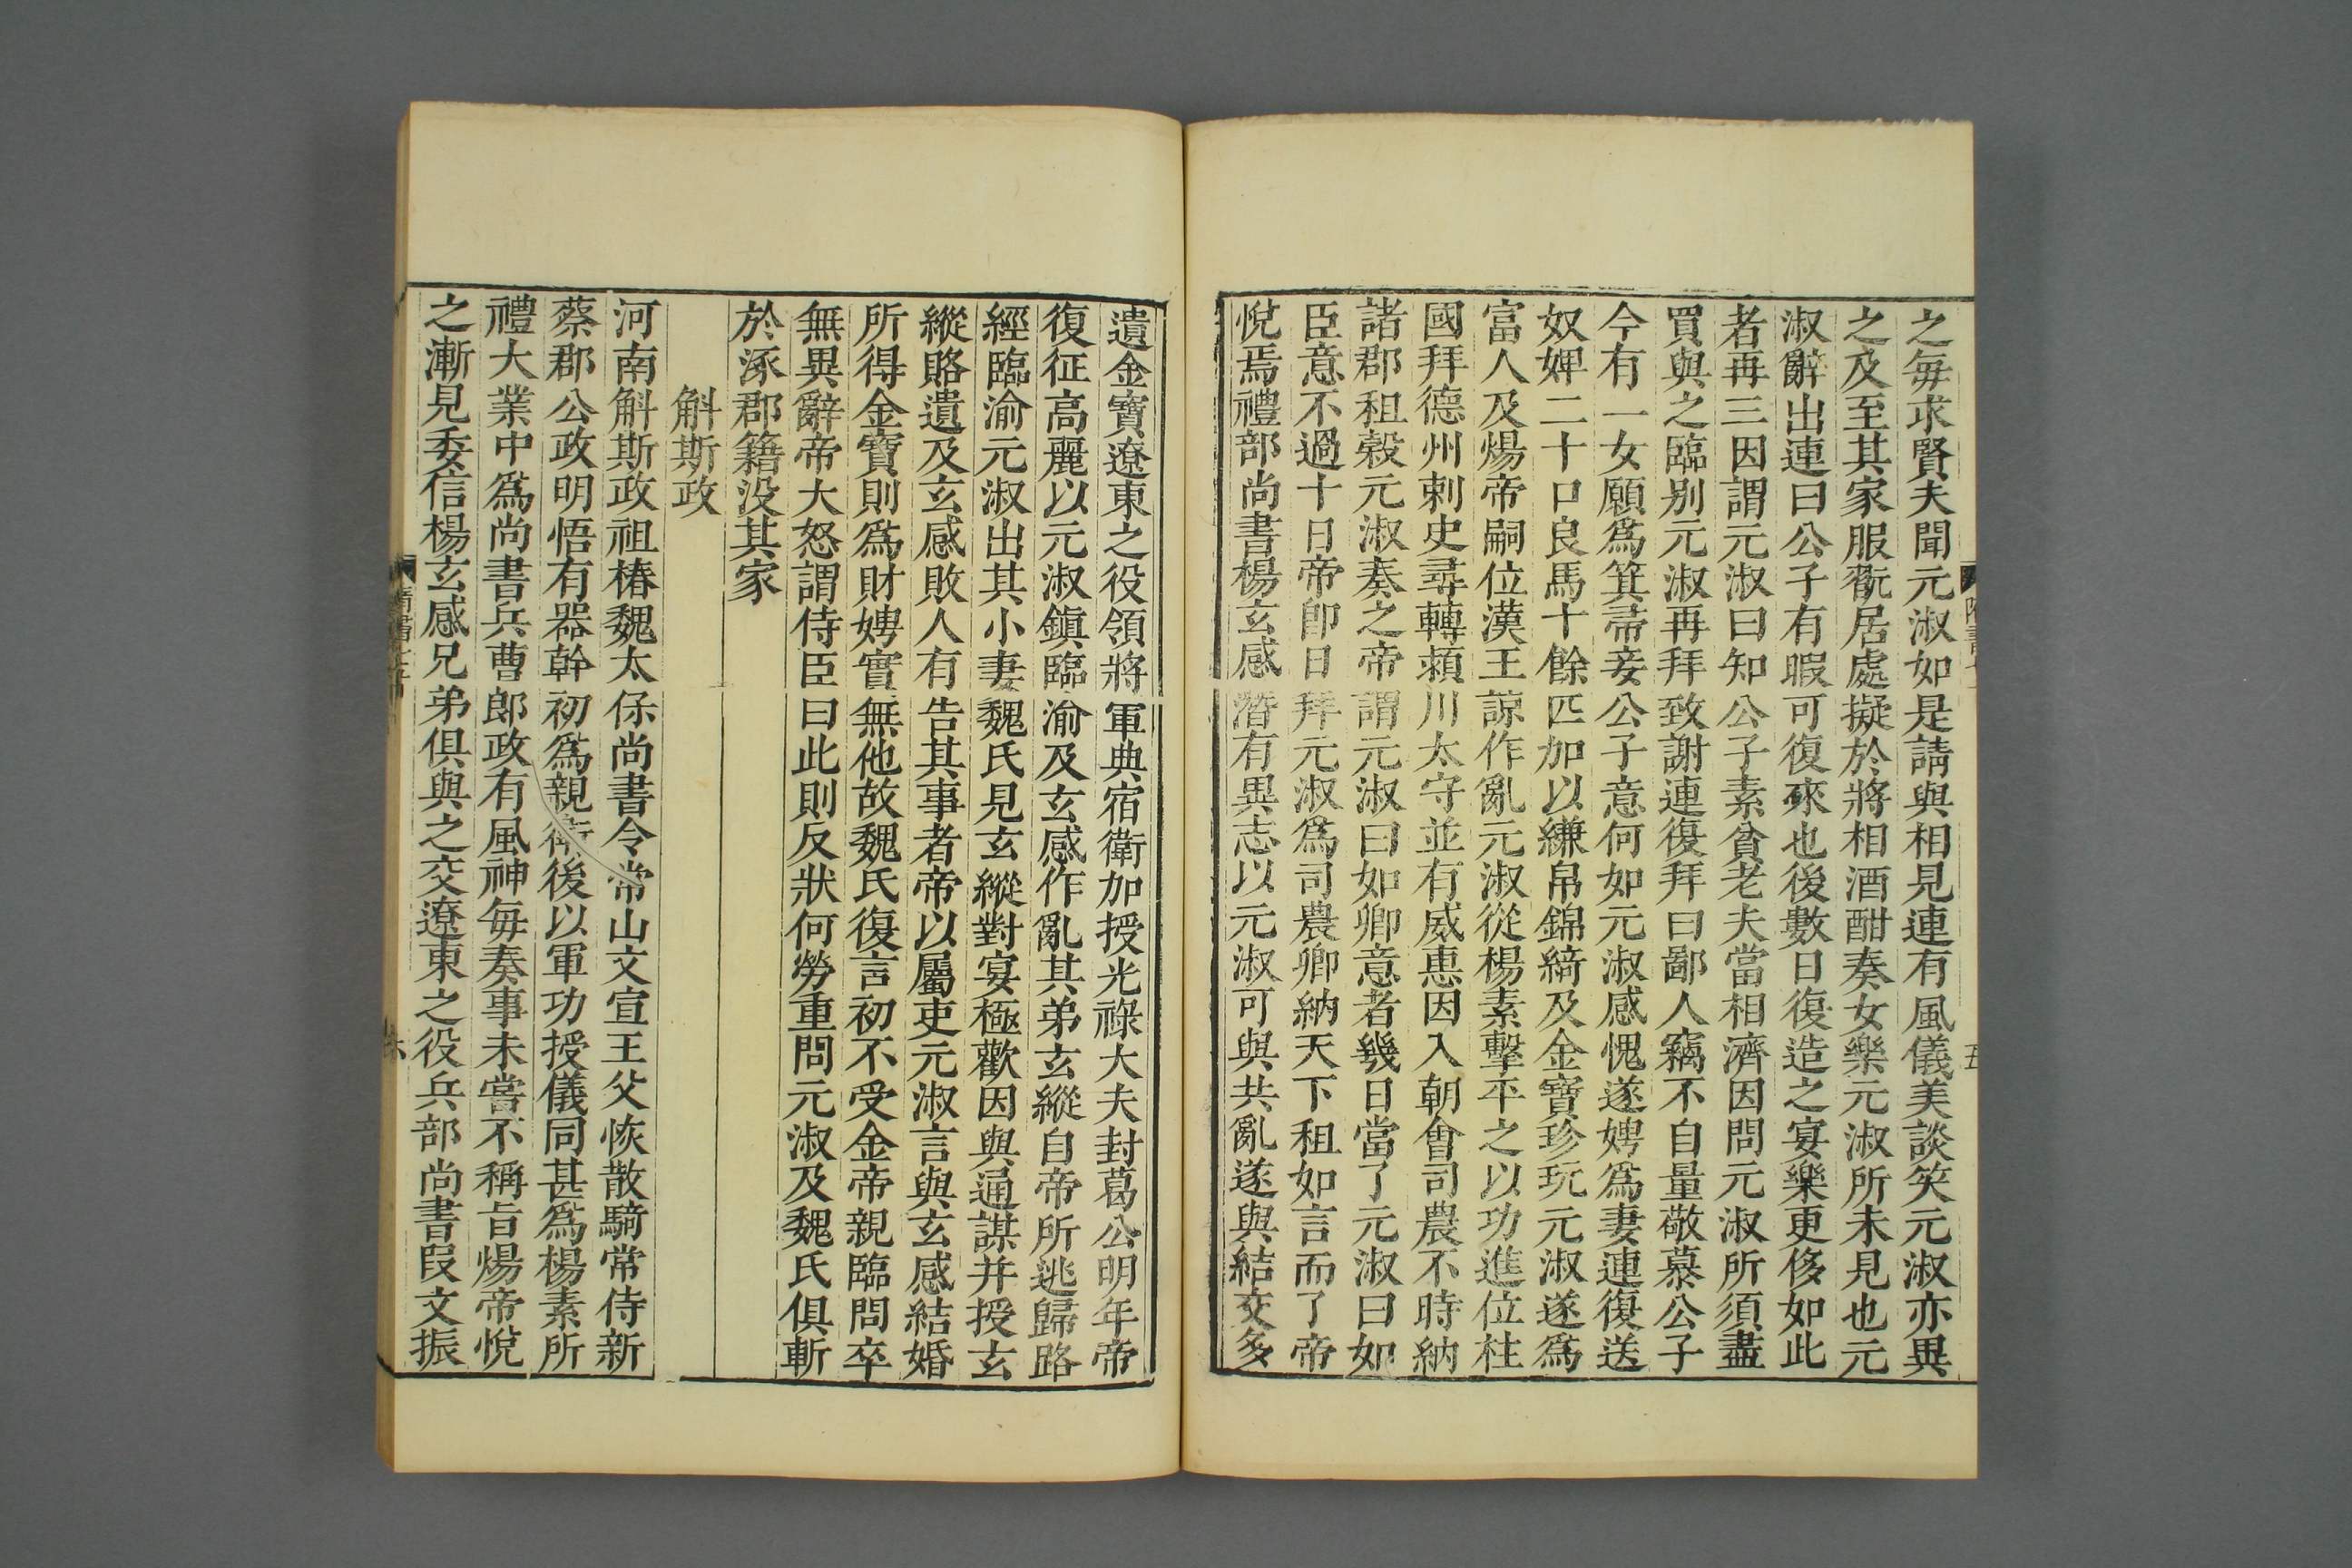 之每求賢夫聞元淑如是請與相見連有風儀美談笑元淑亦異
之及至其家服翫居處擬於將相酒酣奏女樂元淑所未見也元
淑辭出連曰公子有暇可復來也後數日復造之宴樂更侈如此
者再三因謂元淑曰知公子素貧老夫當相濟因問元淑所須盡
買與之臨别元淑再拜致謝連復拜曰鄙人竊不自量敬慕公子
今有一女願爲箕帚妾公子意何如元淑感愧遂娉爲妻連復送
奴婢二十口良馬十餘匹加以縑帛錦綺及金寶珍玩元淑遂爲
富人及煬帝嗣位漢王諒作亂元淑從楊素擊平之以功進位柱
國拜德州刺史尋轉潁川太守並有威惠因入朝會司農不時納
諸郡租穀元淑奏之帝謂元淑曰如卿意者幾日當了元淑曰如
臣意不過十日帝卽日拜元淑爲司農卿納天下租如言而了帝
悅焉禮部尚書楊玄感潛有異志以元淑可與共亂遂與結交多
遺金寶遼東之役領將軍典宿衛加授光祿大夫封葛公明年帝
復征高麗以元淑鎭臨渝及玄感作亂其弟玄縱自帝所逃歸路
經臨渝元淑出其小妻魏氏見玄縱對宴極歡因與通謀并授玄
縱賂遺及玄感敗人有告其事者帝以屬吏元淑言與玄感結婚
所得金寶則爲財娉實無他故魏氏復言初不受金帝親臨問卒
無異辭帝大怒謂侍臣曰此則反狀何勞重問元淑及魏氏俱斬
於涿郡籍没其家
斛斯政
河南斛斯政祖椿魏太保尚書令常山文宣王父恢散騎常侍新
蔡郡公政明悟有器幹初爲親衛後以軍功授儀同甚爲楊素所
禮大業中爲尚書兵曹郎政有風神每奏事未嘗不稱旨煬帝悅
之漸見委信楊玄感兄弟俱與之交遼東之役兵部尚書段文振